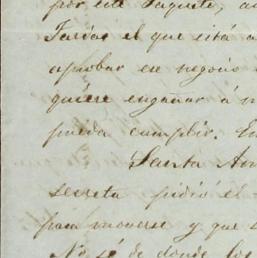 por este Paquete, a
Farias el que está a
aprobar ese negocio
quiere engañar á n
pueda cumplir. En
Santa An
secreta pidió el
para moverse y que s
No sé de donde los